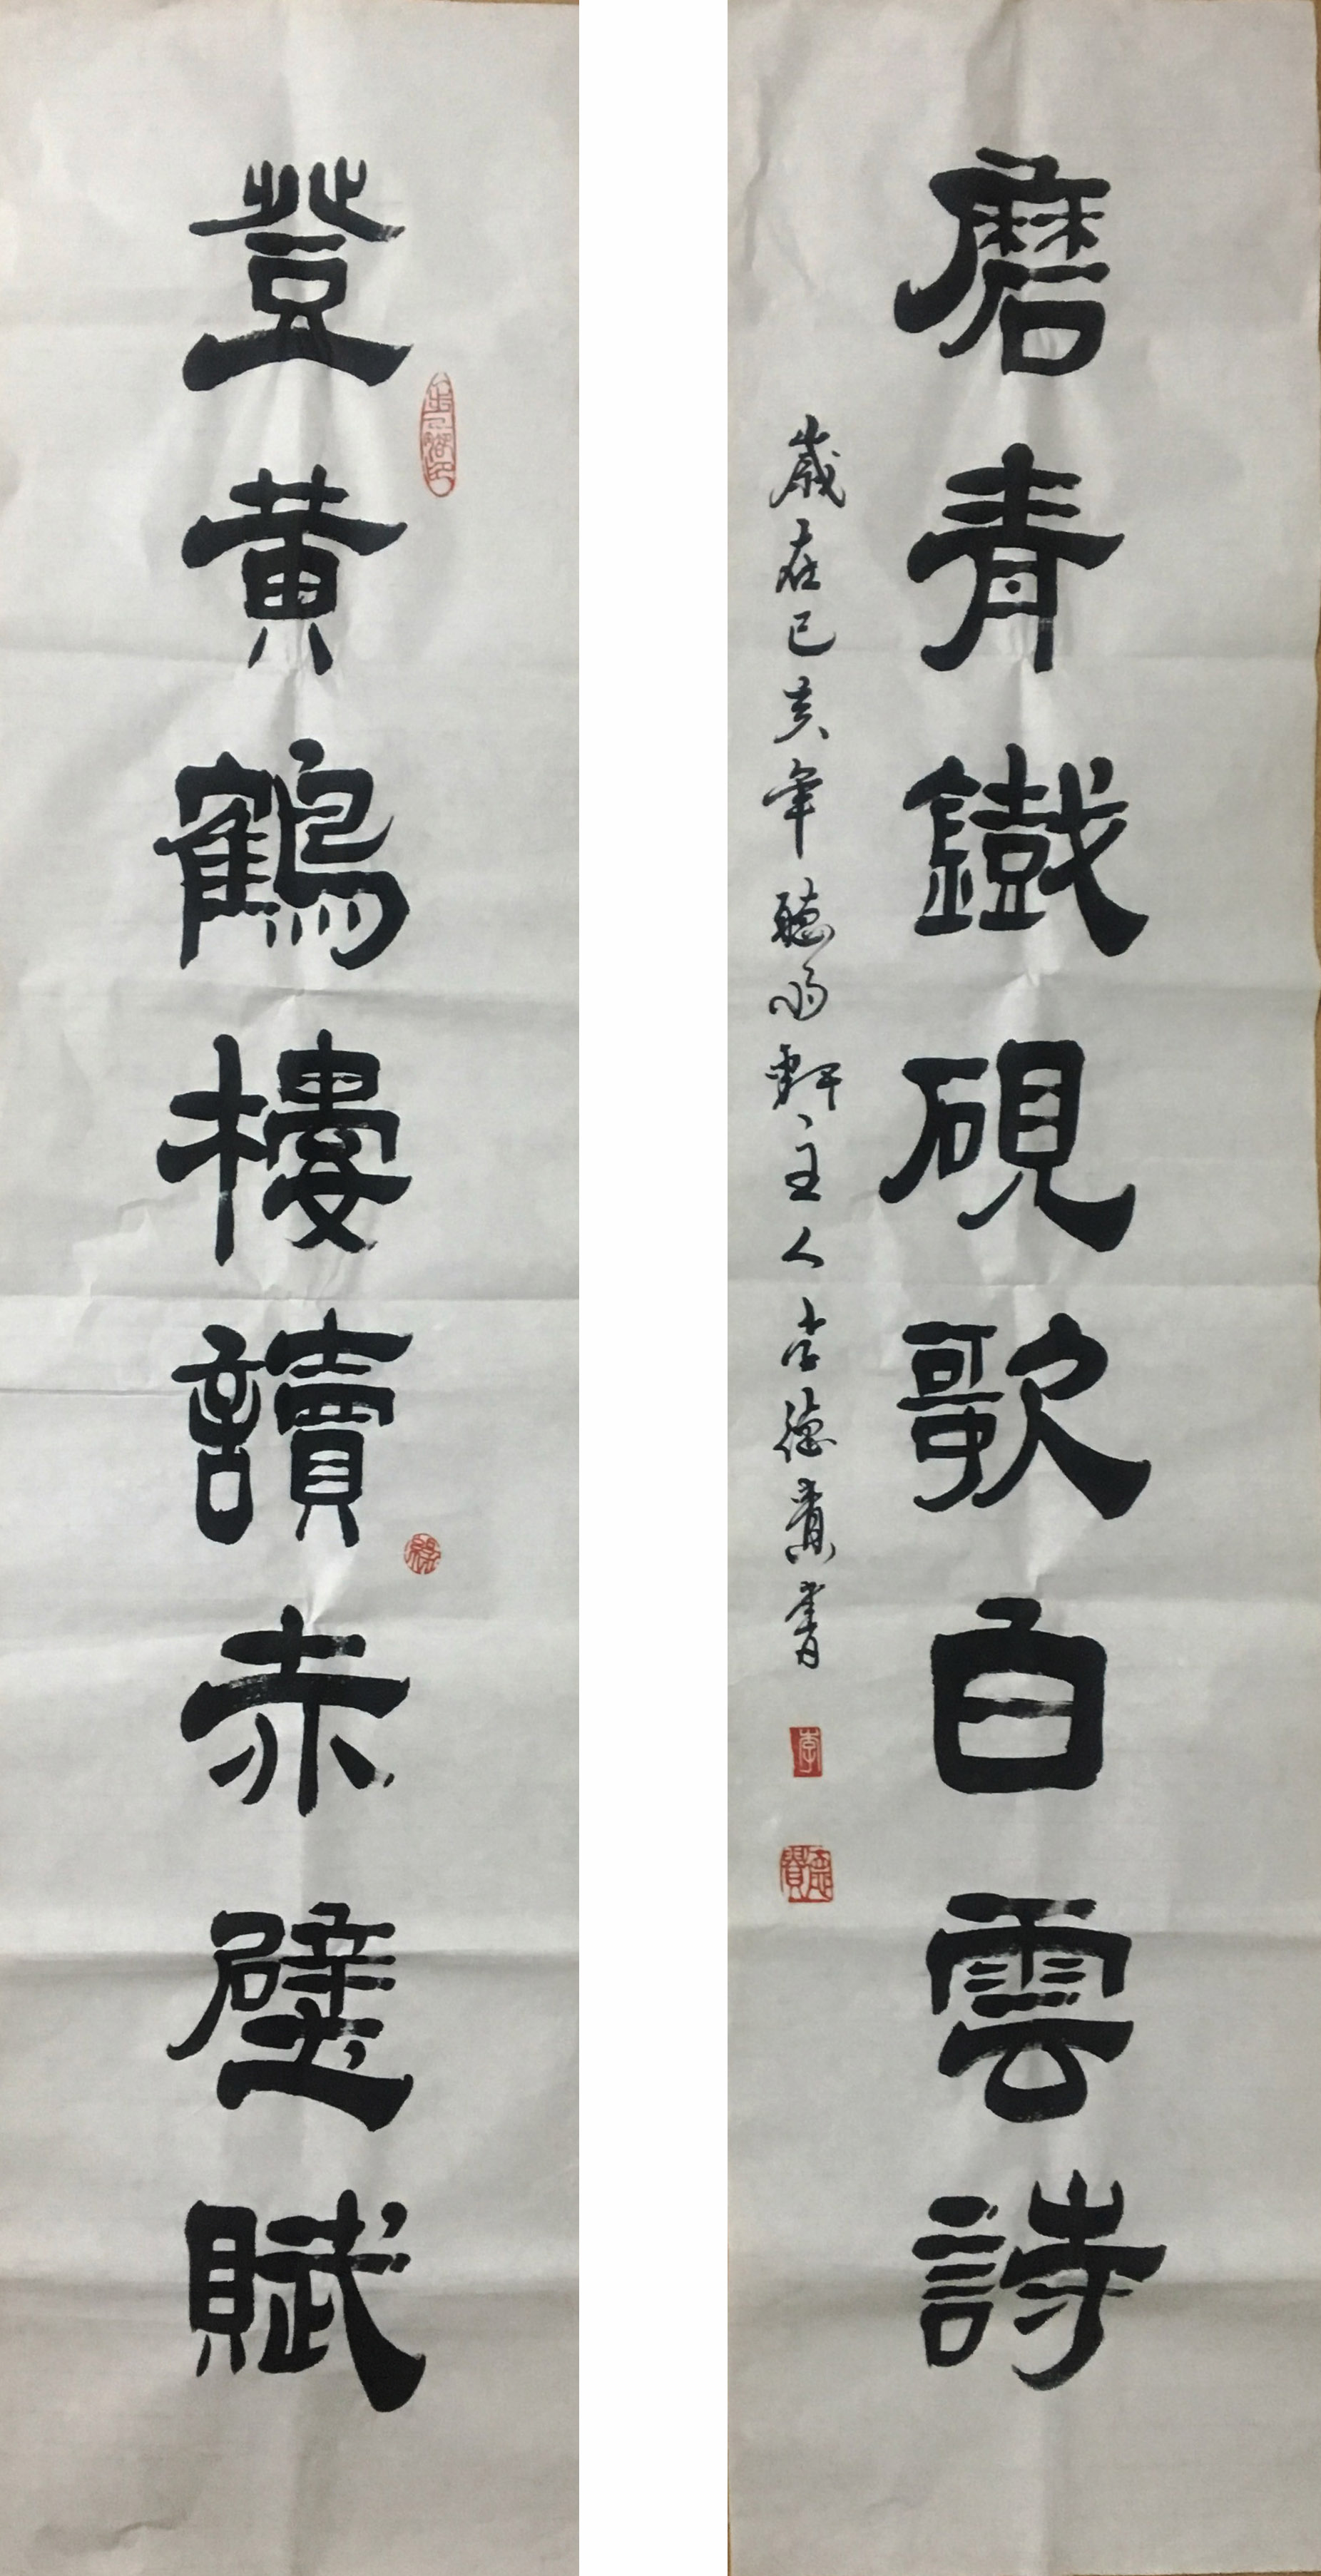 登黄鶴樓讀赤壁賦
磨青鐵硯歌白雲詩
歲在己亥年聽軒主人李德書
李